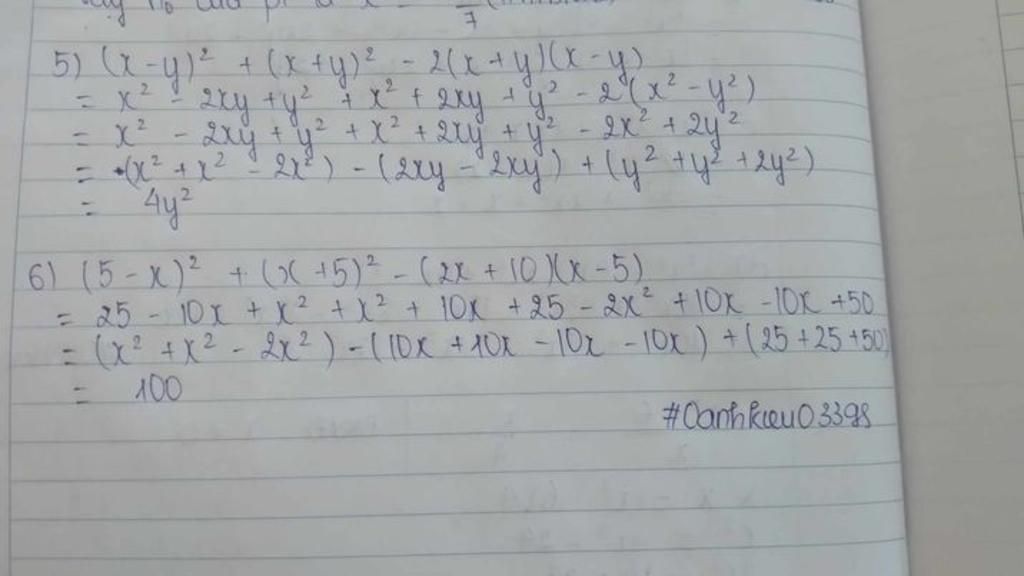 7
5) (x-y)² + (x+y)² - 2(x+y)(x-y)
= x² - 2xy + y² + x² + 2xy + y² - 2(x² - y²)
= x² - 2xy + y² + x² + 2xy + y² - 2x² + 2y²
= (x² + x² - 2x²) - (2xy - 2xy) + (y² + y² + 2y²)
= 4y²
6) (5-x)² + (x+5)² - (2x+10)(x-5)
= 25 - 10x + x² + x² + 10x + 25 - 2x² + 10x - 10x + 50
= (x² + x² - 2x²) - (10x + 10x - 10x - 10x) + (25 + 25 + 50)
= 100
#Oanhkieu03398